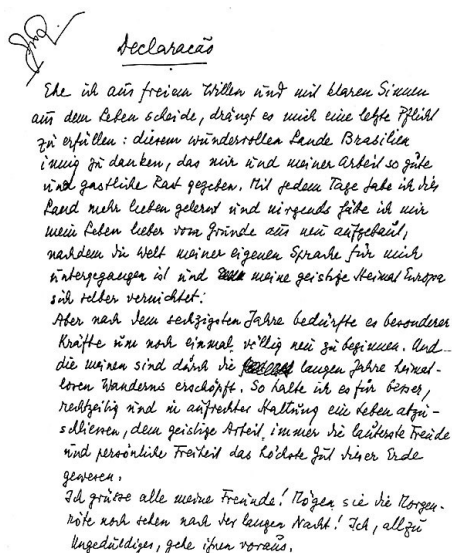 Declaracão
Ehe ich aus freiem Willen und mit klaren Sinnen
aus dem Leben scheide, drängt es mich eine letzte Pflicht
zu erfüllen: diesem wundervollen Lande Brasilien
innig zu danken, das mir und meiner Arbeit so gute
und gastliche Rast gegeben. Mit jedem Tage habe ich dies
Land mehr lieben gelernt und nirgends hätte ich mir
mein Leben lieber vom Grunde aus neu aufgebaut,
nachdem die Welt meiner eigenen Sprache für mich
untergegangen ist und meine geistige Heimat Europa
sich selber vernichtet.
Aber nach dem sechzigsten Jahre bedürfte es besonderer
Kräfte um noch einmal völlig neu zu beginnen. Und
die meinen sind durch die langen Jahre heimat-
losen Wanderns erschöpft. So halte ich es für besser,
rechtzeitig und in aufrechter Haltung ein Leben abzu-
schliessen, dem geistige Arbeit immer die lauterste Freude
und persönliche Freiheit das höchste Gut dieser Erde
gewesen.
Ich grüsse alle meine Freunde! Mögen sie die Morgen-
röte noch sehen nach der langen Nacht! Ich, allzu
Ungeduldiger, gehe ihnen voraus.